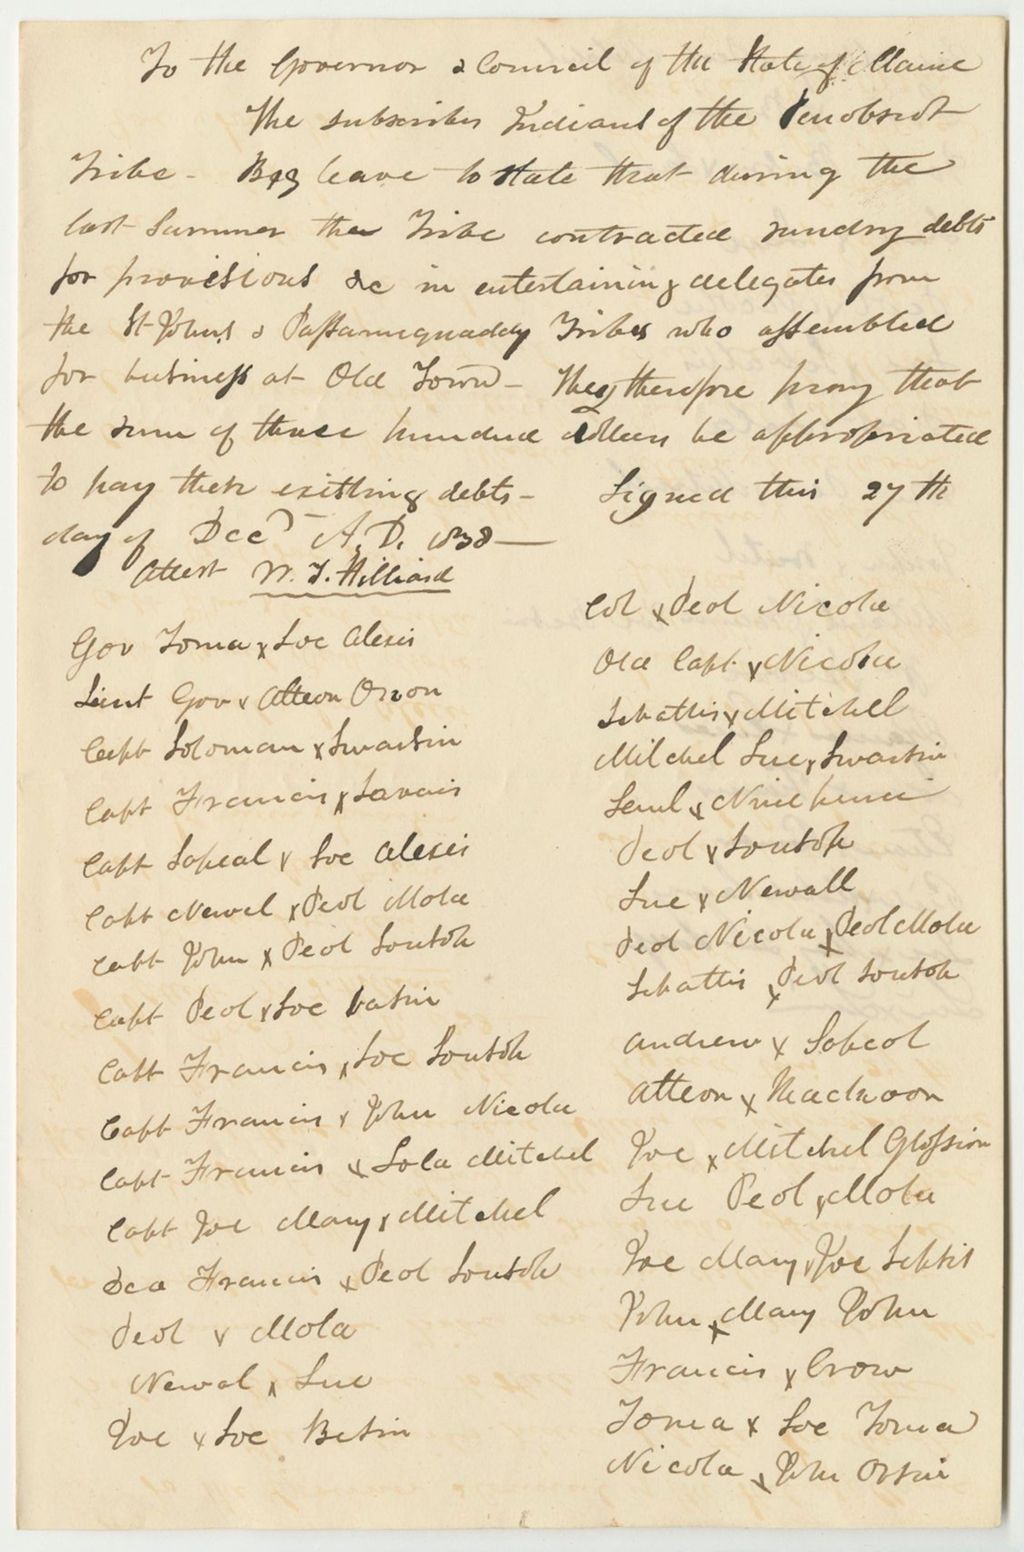 To the Governor & Council of the State of Maine
The subscriber Indians of the Penobscot
Tribe - Beg leave to state that during the
last Summer the Tribe contracted sundry debts
for provisions &c in entertaining delegates from
the St Johns & Passamaquaddy Tribes who assembled
for business at Old Town - They therefore pray that
the sum of three hundred dollars be appropriated
to pay their existing debts - Signed this 27th
day of Decr A.D. 1838 —
Attest W. T. Hilliard
Gov Toma x Soc Alexis
Lieut Gov x Atteon Orson
Capt Soloman x Swassin
Capt Francis x
Capt Sopeal x Soc Alexis
Capt Newel x Peol Mola
Capt John x Peol Soutok
Capt Peol x Soc basin
Capt Francis x Soc Soutok
Capt Francis x John Nicola
Capt Francis x Lola Mitchel
Capt Joe Mary x Mitchel
Dea Francis x Peol Soutok
Peol x Mola
Newal x Sue
Joe x Soc Basin
Col x Peol Nicola
Old Capt x Nicola
Sebattis x Mitchel
Mitchel Sue x Swassin
x
Peol x Soutok
Sue x Newall
Peol Nicola x Peol Mola
Sebattis x Peol Soutok
Andrew x Sobeol
Atteon x
Joe x Mitchel Glossion
Sue Peol x Mola
Joe Mary x Joe
John x Mary John
Francis x Crow
Toma x Soc Toma
Nicola x John